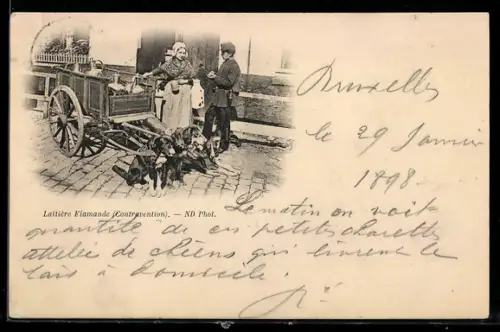 Bruxelles
le 29 Janvier
1898.
Laitière Flamande (Contravention). — ND Phot.
Le matin on voit
quantité de ces petites charettes
attelée de chiens qui livrent le
lais à domicile.
R